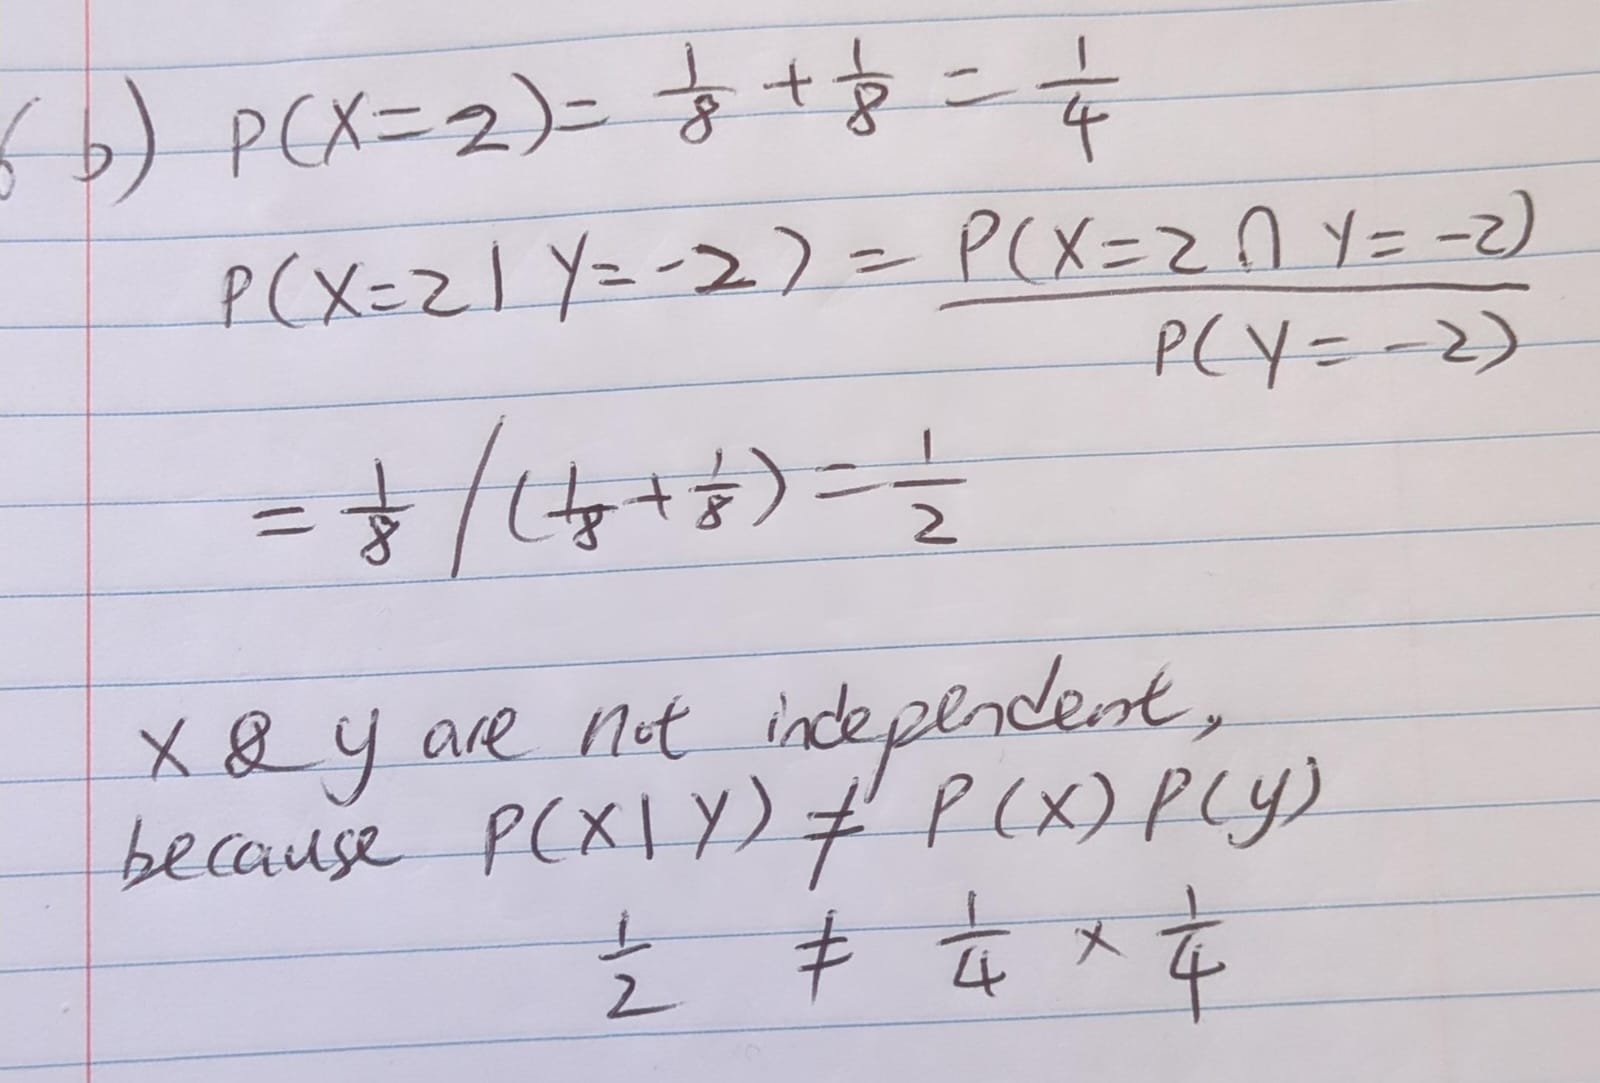 6 b) P(X=2) = 1/8 + 1/8 = 1/4
P(X=2 | Y=-2) = P(X=2 ∩ Y=-2) / P(Y=-2)
= 1/8 / (1/8 + 1/8) = 1/2
X & y are not independent,
because P(X|Y) ≠ P(X) P(y)
1/2 ≠ 1/4 × 1/4